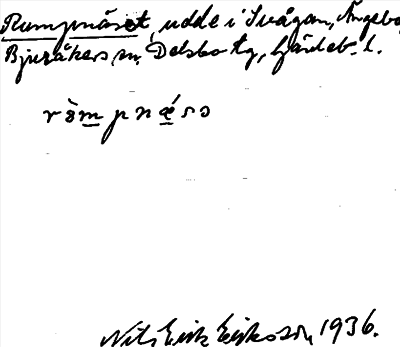 Rumpnäset, udde i Svågan, Ängebo,
Bjuråkers sn, Delsbo tg, Gävleb. l.
ròmpnǽsə
Nils Erik Eriksson 1936.